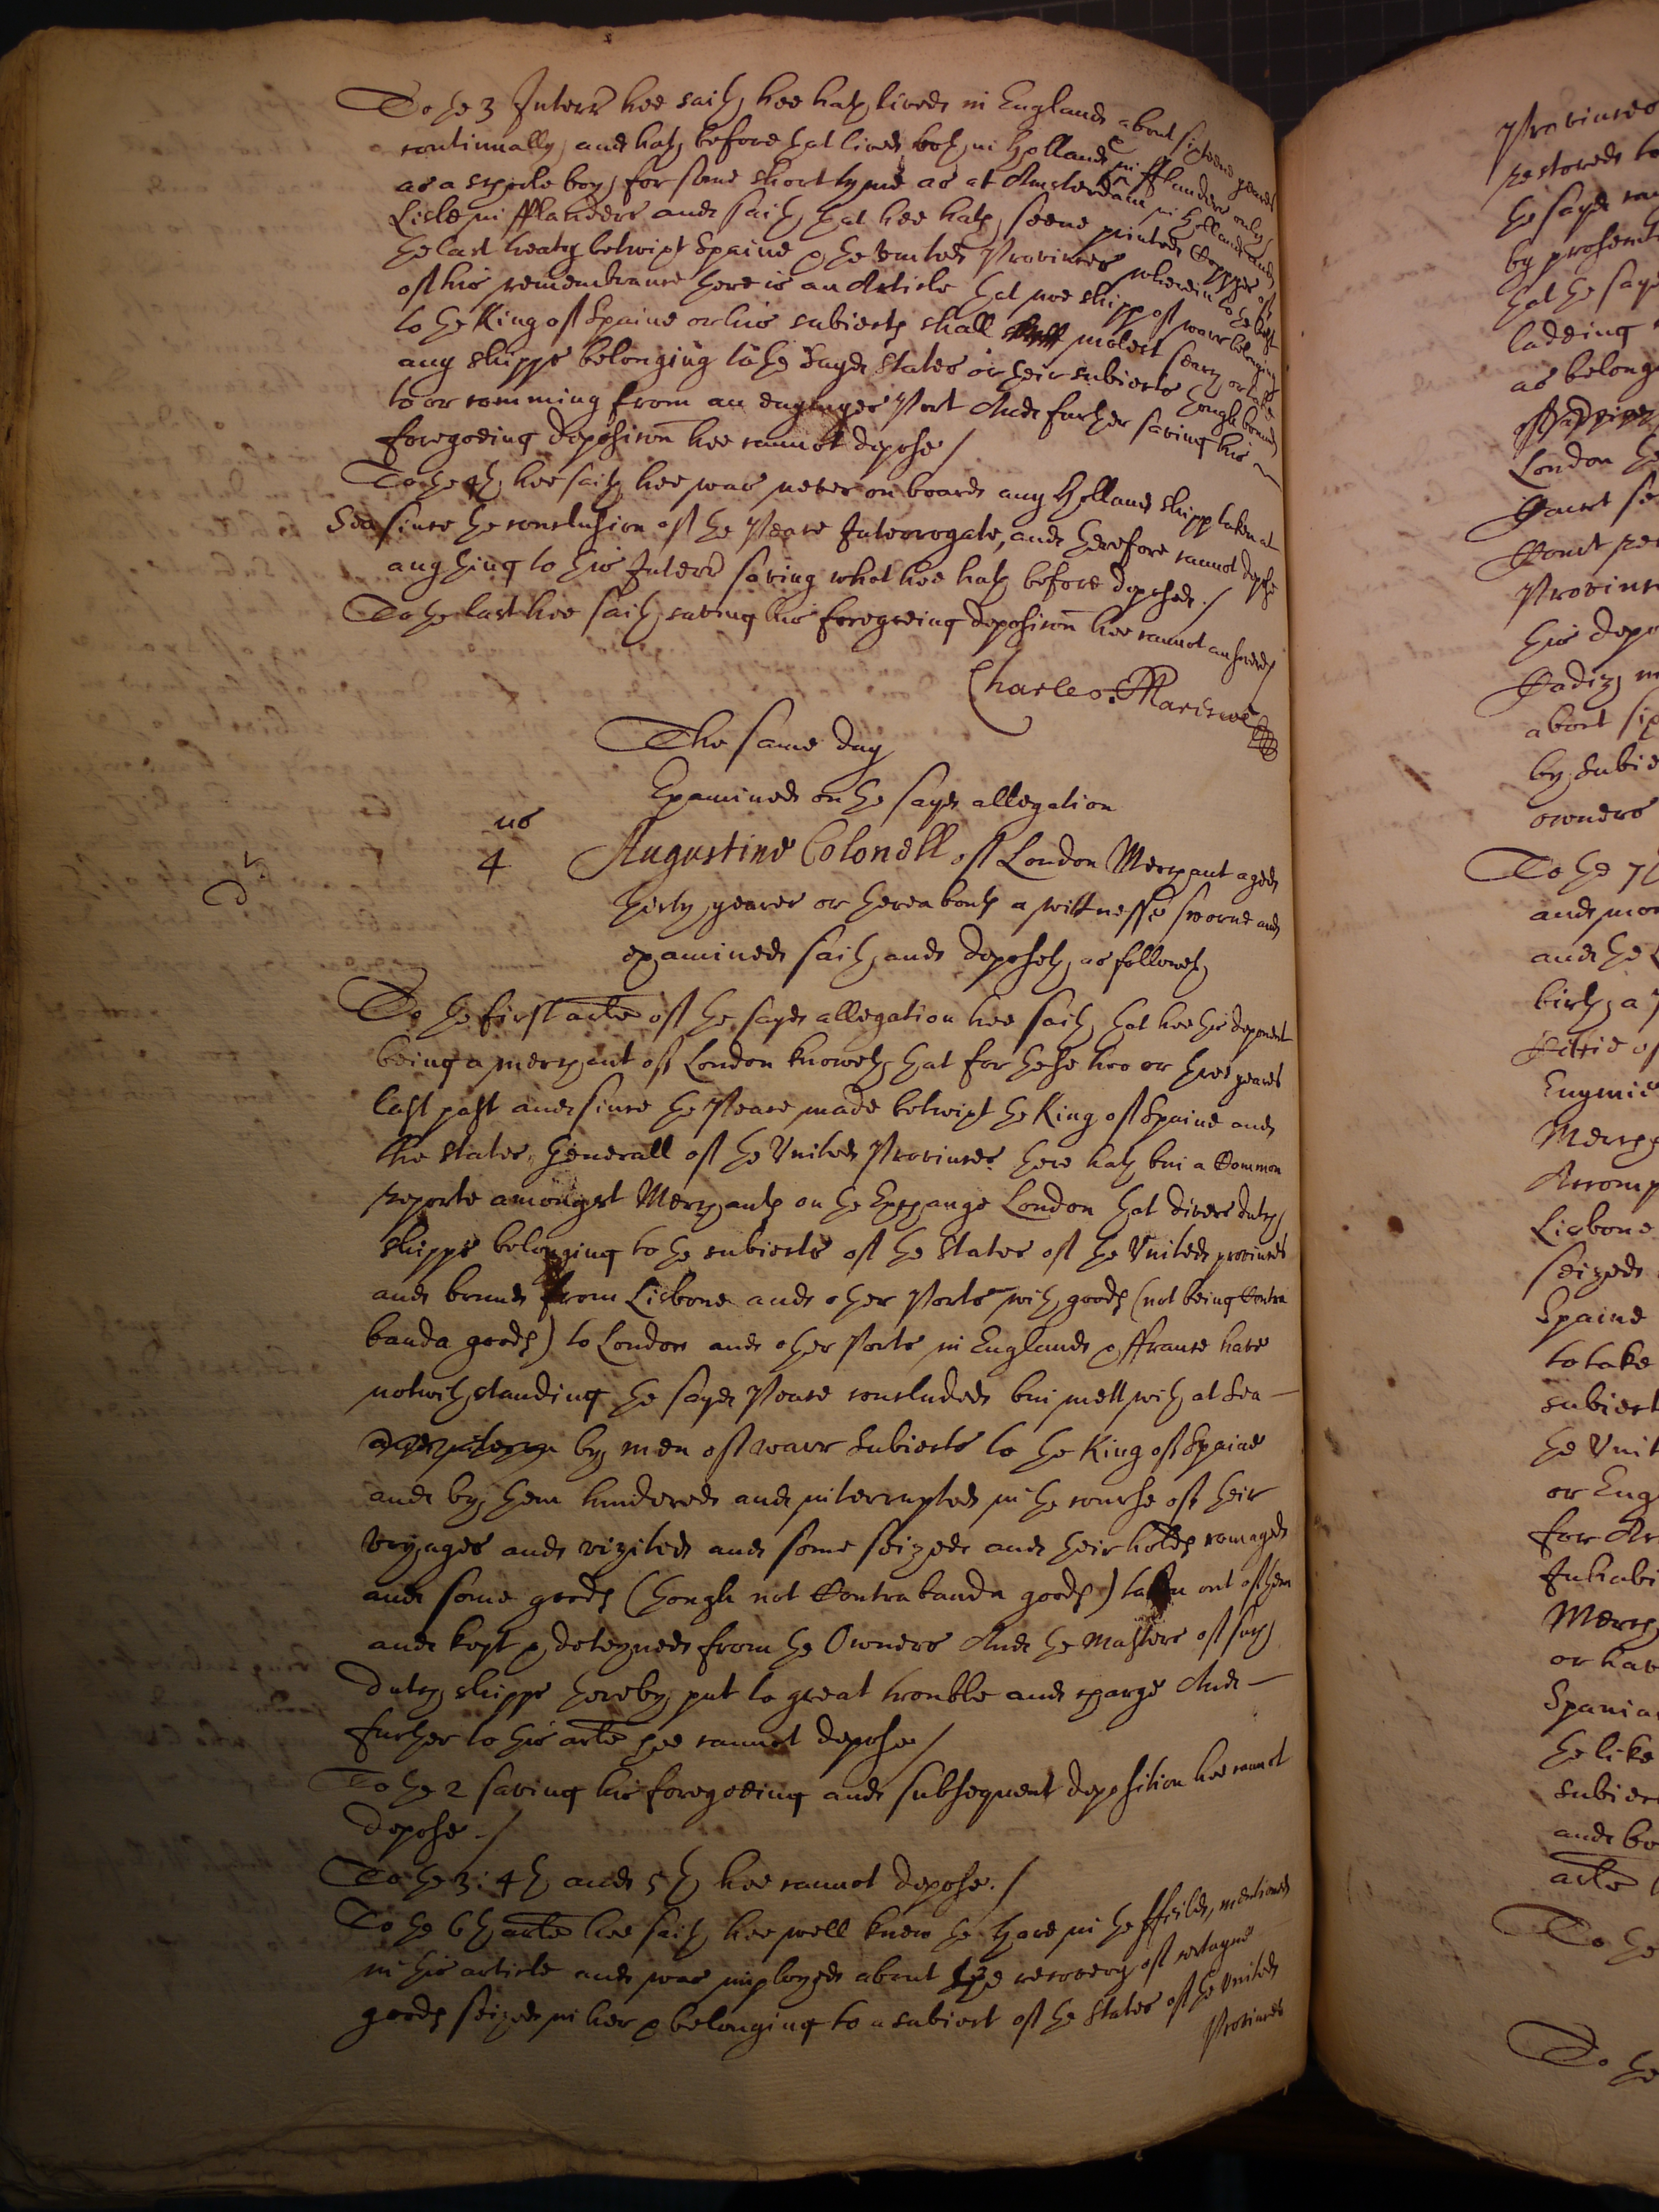 To the 3 Interr hee saith, hee hath lived in England about sixteene yeares
continually, and hath before that lived both in Holland & in fflanders only
as a schoole boy, for some short tyme as at Amsterdam in Holland and
Lisle in fflanders and saith that hee hath seene printed Coppyes of
the last treaty betwixt Spaine & the United Provinces wherein to the best
of his remembrance there is an Article that noe shipp of warr belonging
to the King of Spaine or his subiects shall molest search or take
any shipps belonging to the sayd States or their subiects though bound
to or comming from an enymyes Port And further saving his
foregoeing deposicon hee cannot depose /
To the 4th hee saith hee was never on board any Holland shipp taken at
Sea since the conclusion of the Peace Interrogate, and therefore cannot depose
any thing to this Interr saving what hee hath before deposed. /
To the last hee saith saving his foregoeing deposicon hee cannot answere /
Charles
The same day
Examined on the sayd allegation
us
4
Augustine Colonell of London Merchant aged
thirty yeares or thereabouts a wittnesse sworne and
examined saith and deposeth as followeth
To the first arte of the sayd allegation hee saith that hee this deponent
being a merchant of London knoweth that for these two or three yeares
last past and since the Peace made betwixt the King of Spaine and
the States Generall of the United Provinces there hath bin a Common
reporte amongst Merchants on the Exchange London that divers dutch
shipps belonging to the subiects of the States of the United provinces
and bound from Lisbone and other Ports with goods (not being Contra
banda goods) to London and other Ports in England & ffrance have
notwithstanding the sayd Peace concluded bin mett with at Sea
by men of warr subiects to the King of Spaine
and by them hindered and interrupted in the course of their
voyages and vizited and some seized and their holds romaged
and some goods (though not Contrabanda goods) taken out of them
and kept & deteyned from the Owners And the Masters of such
dutch shipps thereby put to great trouble and charge And
further to this arte hee cannot depose /
To the 2 saving his foregoeing and subsequent deposition hee cannot
depose. /
To the 3: 4th and 5th hee cannot depose. /
To the 6th arte hee saith hee well knew the Hare in the ffeild, mentioned
in this article and was imployed about the recovery of certayne
goods seized in her & belonging to a subiect of the States of the United
Provinces